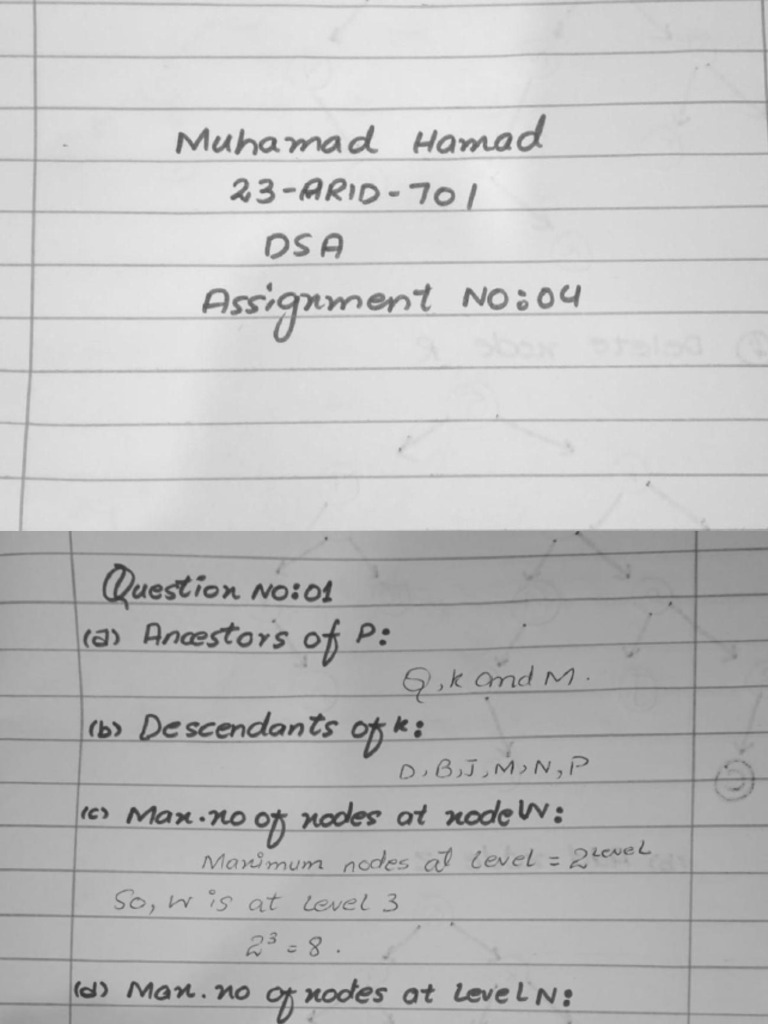 Muhamad Hamad
23-ARID-701
DSA
Assignment NO:04
Question NO:01
(a) Ancestors of P:
Q, K and M.
(b) Descendants of K:
D, B, J, M, N, P
(c) Max. no of nodes at node W:
Maximum nodes at level = 2^Level
So, W is at Level 3
2³ = 8.
(d) Max. no of nodes at Level N: